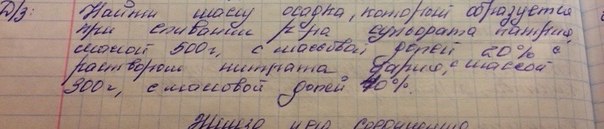 Д/з: Найти массу осадка, который образуется
при сливании р-ра сульфата натрия,
массой 500г, с массовой долей 20% с
раствором нитрата бария, с массой
300г, с массовой долей 40%.
Железо и его соединения